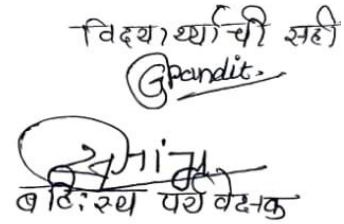 विद्यार्थ्याची सही
GPandit.
बहि:स्थ पर्यवेक्षक